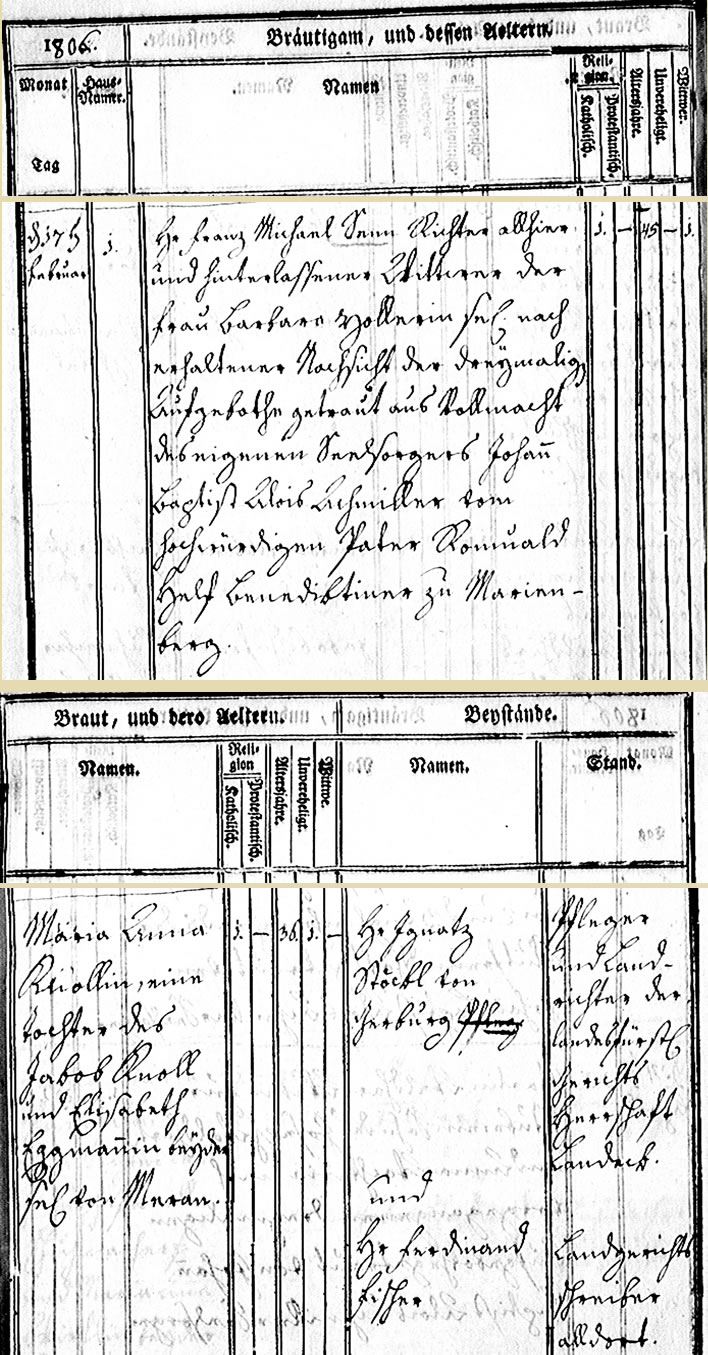 1806.
Bräutigam, und dessen Aeltern.
Monat
Tag
Haus-
Numer.
Namen
Reli-
gion
Katholisch.
Protestantisch.
Altersjahre.
Unverehligt.
Wittwer.
d 17t
Februar
1.
Hr Franz Michael Senn Richter allhier
und hinterlassener Wittwer der
Frau Barbara Vollerin sel. nach
erhaltener Nachsicht der dreymalig
Aufgebothe getraut aus Vollmacht
des eigenen Seelsorgers Johann
Baptist Alois Achmiller vom
hochwürdigen Pater Romuald
Helf Benediktiner zu Marien-
berg.
1. – 45 – 1.
Braut, und dero Aeltern.
Namen.
Reli-
gion
Katholisch.
Protestantisch.
Altersjahre.
Unverehligt.
Wittwe.
Beystände.
Namen.
Stand.
Maria Anna
Knollin, eine
Tochter des
Jakob Knoll
und Elisabeth
Eggmannin beyder
sel. von Meran.
1. – 36. 1. –
Hr Ignatz
Stöckl von
Gerburg Pfleg
und
Hr Ferdinand
Fischer
Pfleger
und Land-
richter der
landesfürstl
Gerichts
Herrschaft
Landeck.
Landgerichts
schreiber
alldort.